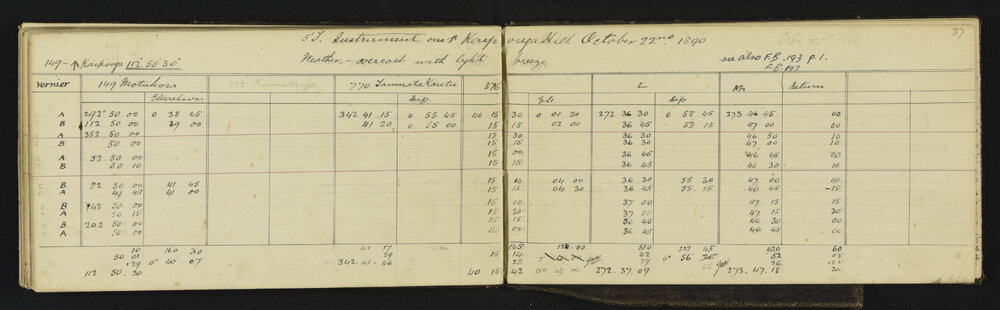 37
5 I. Instrument on Hill October 22nd 1890
149 - Kaiponga 112° 50' 30" Weather - overcast with light breeze see also F.B. 193 p. 1.
F.B. 197
Vernier 149 Motuhora 772 770 876 L Return
Elevation Dip Ele. Dip
A 292° 50 00 0 38 45 342 41 15 0 55 45 40 15 30 0 01 30 272 36 30 0 58 45 273 46 45 00
B 112 50 00 39 00 41 20 0 55 00 15 15 02 00 36 45 58 15 47 00 00
A 352 50 00 15 30 36 30 46 50 10
B 50 00 15 15 36 45 47 00 10
A 52 50 00 15 00 36 45 46 45 00
B 50 10 15 15 36 45 46 30 10
B 82 50 00 41 45 15 10 04 00 36 30 55 30 47 00 00
A 49 45 41 00 15 10 04 30 36 45 55 15 46 45 -15
B 142 50 00 15 00 37 00 47 15 15
A 50 15 15 30 37 00 47 15 30
B 202 50 00 15 15 36 45 47 30 00
A 50 00 15 00 36 45 46 45 00
10 160 30 41 17 165 510 227 45 620 60
50 01 29 15 14 42 0 56 52 05
29 0° 40 07 342.41.46 26
112. 50. 30 40 15 42 272. 37. 09 273. 47. 18 30